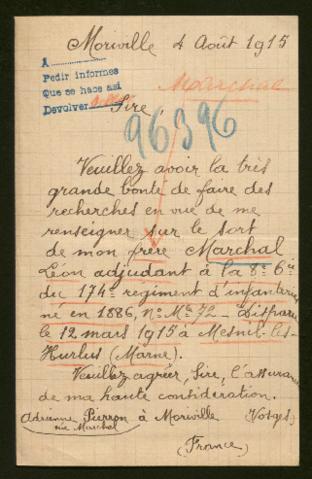 Moriville 4 Août 1915
A
Pedir informes
Que se hace así
Devolver
Marchal
Sire,
96396
Veuillez avoir la très
grande bonté de faire des
recherches en vue de me
renseigner sur le sort
de mon frère Marchal
Léon adjudant à la 8e Cie
du 174e régiment d'infanterie
né en 1886, No Mle 72 - Disparu
le 12 mars 1915 à Mesnil-les-
Hurlus (Marne).
Veuillez agréer, Sire, l'assurance
de ma haute considération.
Adrienne Pierron à Moriville (Vosges)
née Marchal
(France)